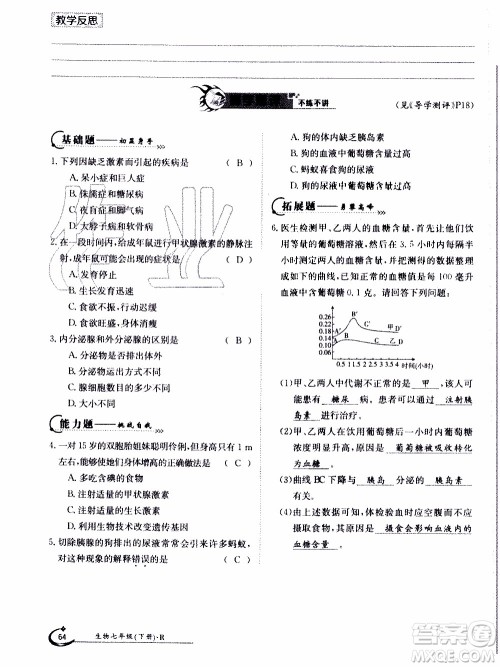 教学反思
不练不讲
(见《导学测评》P18)
基础题 初显身手
1.下列因缺乏激素而引起的疾病是 ( B )
A.呆小症和巨人症
B.侏儒症和糖尿病
C.夜盲症和脚气病
D.大脖子病和软骨病
2.在一段时间内,给成年鼠进行甲状腺激素的静脉注
射,成年鼠可能会出现的症状是 ( D )
A.发育停止
B.生长发育迅速
C.食欲不振,行动迟缓
D.食欲旺盛,身体消瘦
3.内分泌腺和外分泌腺的区别是 ( B )
A.分泌物多少不同
B.有无导管
C.分泌物成分不同
D.腺细胞数目的多少不同
能力题 挑战自我
4.一对 15 岁的双胞胎姐妹聪明伶俐,但身高只有 1 m
左右,能够使她们身体增高的正确做法是 ( C )
A.多吃含碘的食物
B.注射适量的甲状腺激素
C.注射适量的生长激素
D.利用生物技术改变遗传基因
5.切除胰腺的狗的尿液常招来许多蚂蚁,对
这种现象的解释错误的是 ( C )
A.狗的体内缺乏胰岛素
B.狗的尿液中葡萄糖含量过高
C.蚂蚁喜食狗的尿液
D.狗的血液中葡萄糖含量过高
拓展题 勇攀高峰
6.医生检测甲、乙两人的血糖含量,首先让他们饮
用等量的葡萄糖溶液,然后在 3.5 小时内每隔半
小时测定两人的血糖含量,并将测定的数据整理
成如图所示的曲线。正常的血糖值是每 100 毫升
血液中含葡萄糖 0.1 克。请回答下列问题:
0.26
0.24
0.22
0.20
0.18
0.16
0.14
0.12
0.10
A'
B'
C'
甲 D'
A
B
C
乙 D
0.5 1 1.5 2 2.5 3 3.5 4 时间(小时)
(1)甲、乙两人中代谢不正常的是 甲 ,该人可能
患有 糖尿 病,该病可以通过 注射胰
岛素 进行治疗。
(2)甲、乙两人在饮用葡萄糖溶液后,血液中葡萄糖
浓度明显升高,是因为 葡萄糖被吸收转化
为血糖 。
(3)曲线 BC 下降与 胰岛 分泌的 胰岛素
有关。
(4)由上述数据可知,体检时血液检查应空腹而不
应摄食,原因是 摄食会影响血液内的
血糖含量 。
64 生物七年级(下册)·R
作业帮